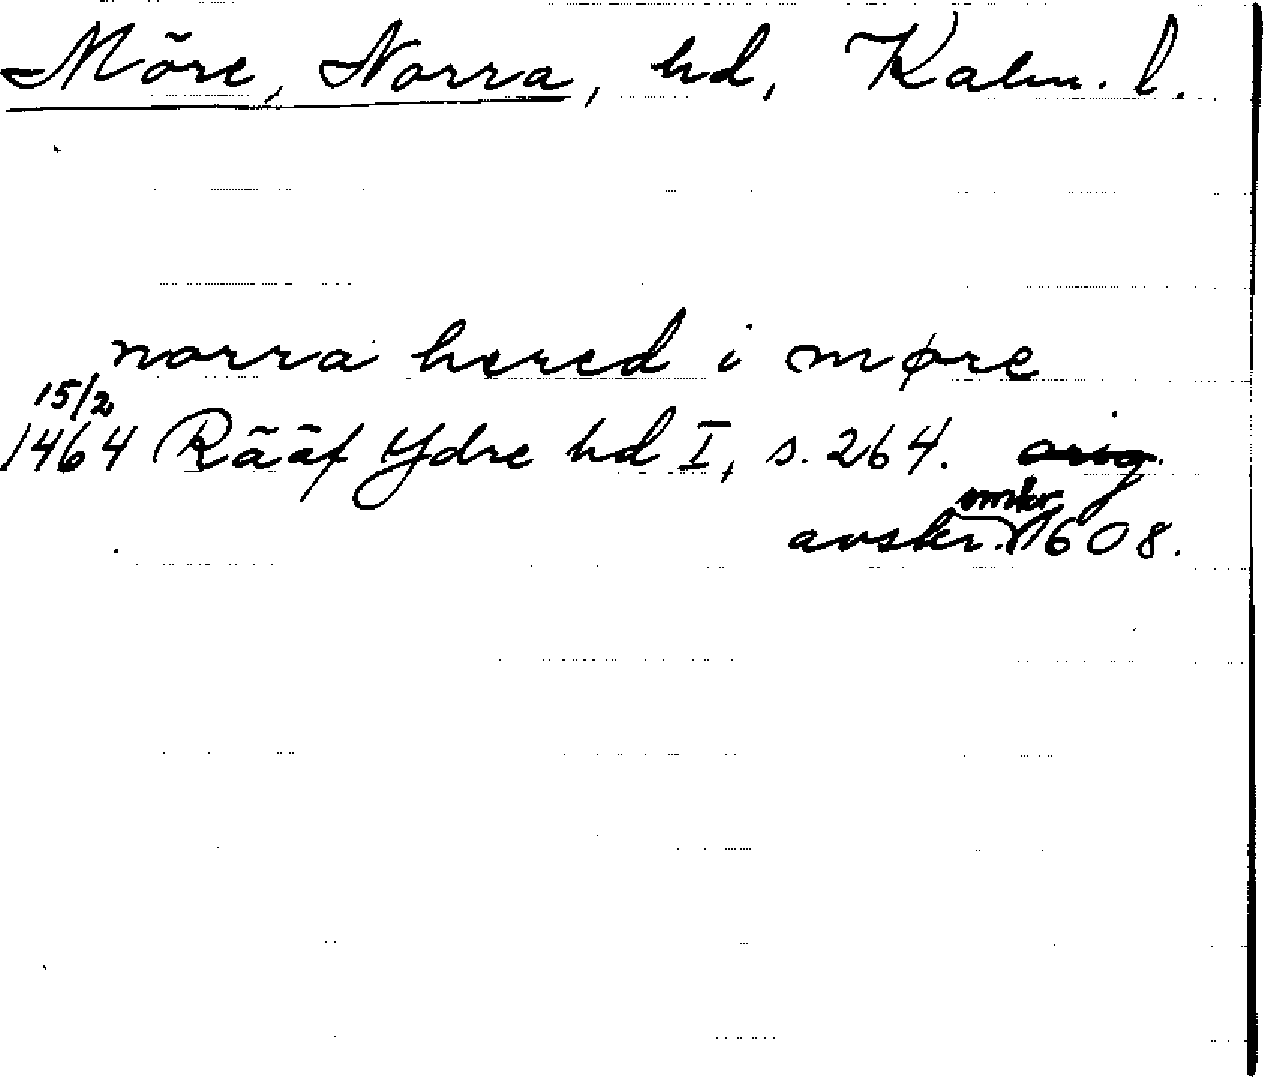 Möre, Norra, hd, Kalm. l.
norra hered i møre
15/2
1464 Rääf Ydre hd I, s. 264. orig.
omkr
avskr. 1608.